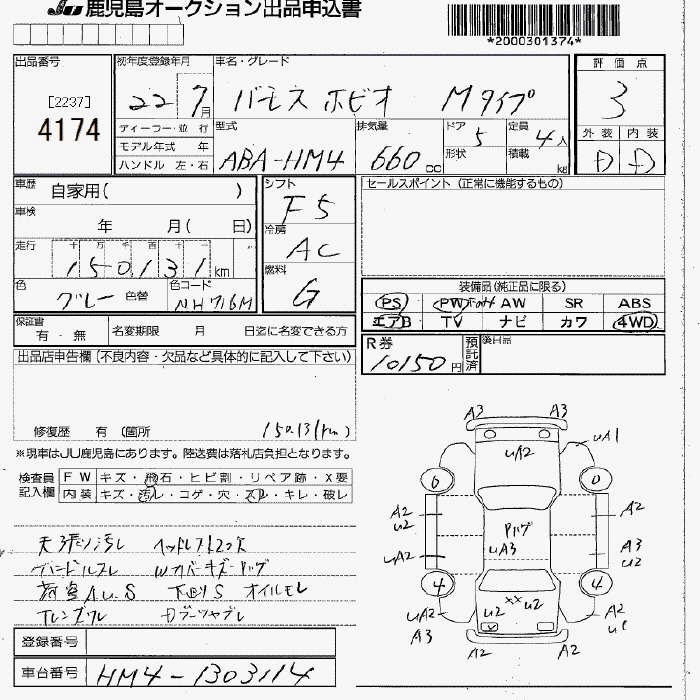 JU 鹿児島オークション出品申込書
*2000301374*
出品番号
[2237]
4174
初年度登録年月
22 7月
車名・グレード
バモス ホビオ Mタイプ
評価点
3
外装 内装
D D
ディーラー・並行
モデル年式 年
ハンドル 左・右
型式
ABA-HM4
排気量
660cc
ドア 5
形状
定員 4人
積載 kg
車歴 自家用( )
車検 年 月( 日)
走行 十万千百十
150131km
色 グレー 色替
色コード NH716M
シフト
F5
冷房
AC
燃料
G
セールスポイント(正常に機能するもの)
装備品(純品に限る)
PS PW AW SR ABS
エアB TV ナビ カワ 4WD
保証書 有・無
名変期限 月 日迄に名変できる方
R券
10150円
預託済
後日品
出品店申告欄(不良内容・欠品など具体的に記入して下さい)
修復歴 有(箇所 150131(km)
※現車はJU鹿児島にあります。陸送費は落札店負担となります。
検査員記入欄
FW キズ・飛石・ヒビ割・リペア跡・X要
内装 キズ・汚レ・コゲ・穴・スレ・キレ・破レ
天張リ汚レ ヘッドレスト2欠
ハンドルスレ
荷室AU.S 下回りS オイルモレ
A3 A3
UA1
UA2
6 0
A2 U2
A2
Pハゲ
UA3
UA2
A3 U2
4 4
U2 XX U2
UA2 A3
A2
A2 A2
登録番号
車台番号 HM4-1303114